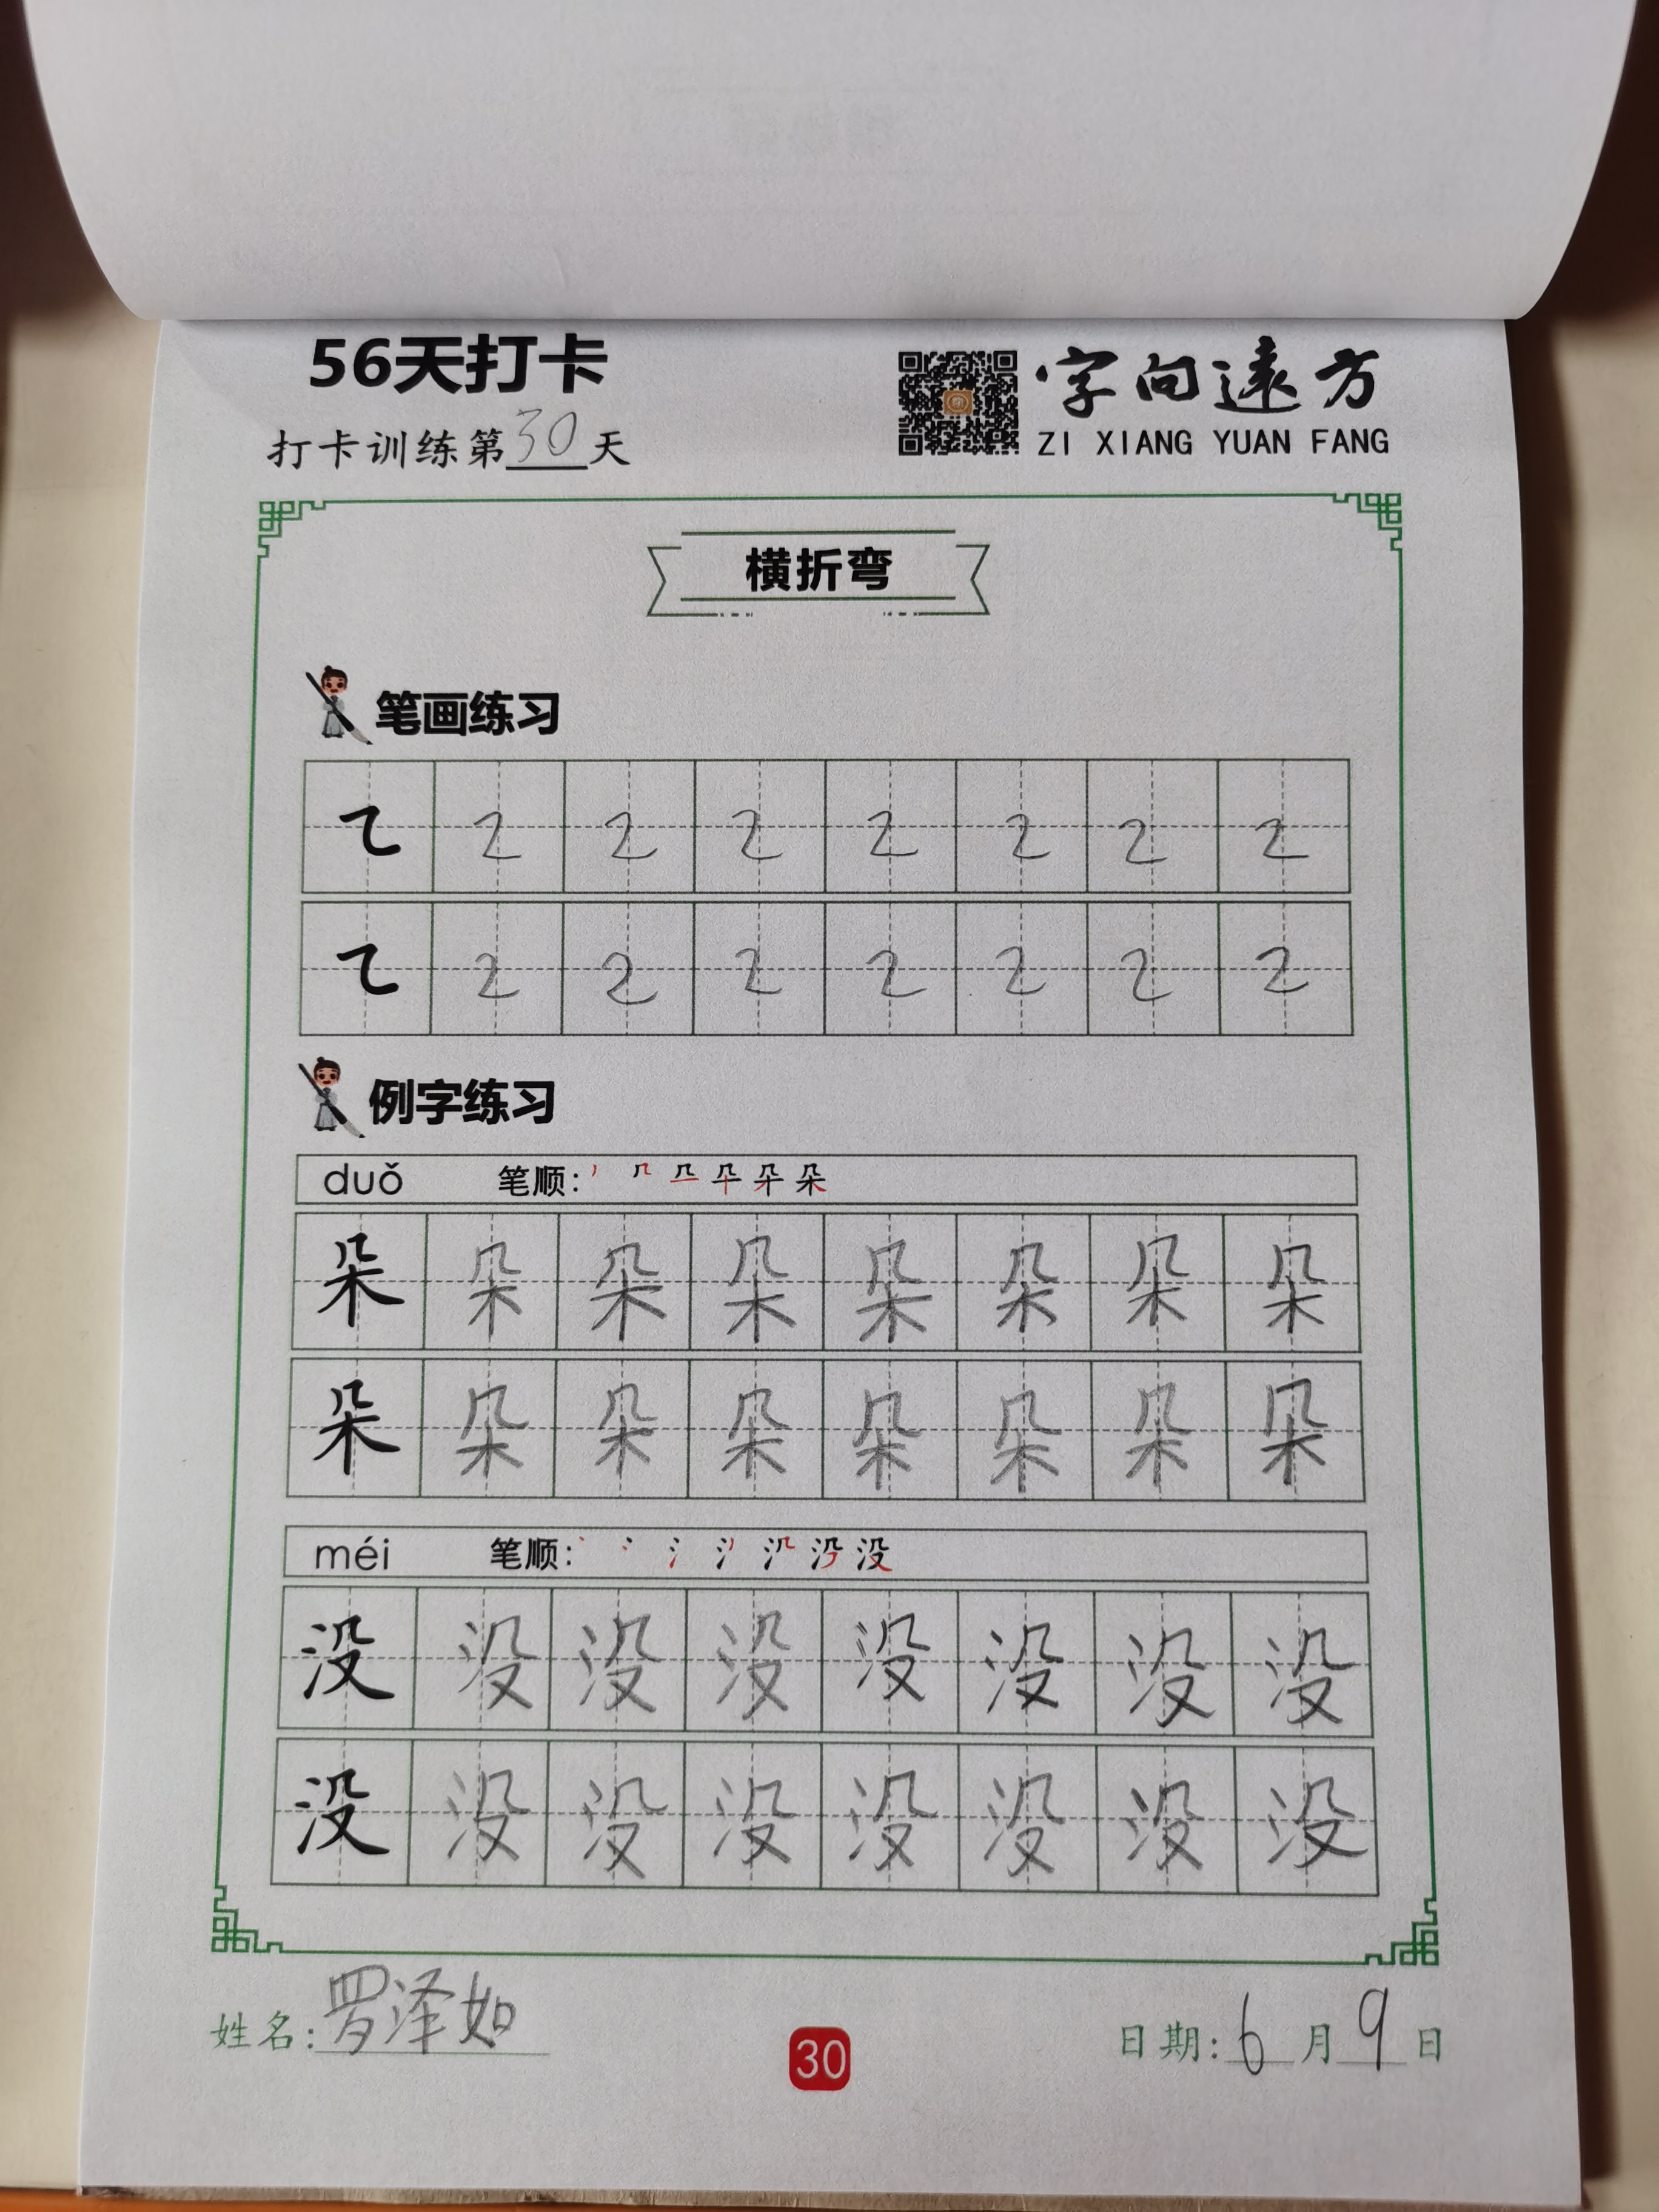 56天打卡
打卡训练第30天
字向遠方
ZI XIANG YUAN FANG
横折弯
笔画练习
㇍ ㇍ ㇍ ㇍ ㇍ ㇍ ㇍ ㇍
㇍ ㇍ ㇍ ㇍ ㇍ ㇍ ㇍ ㇍
例字练习
duǒ 笔顺:
朵 朵 朵 朵 朵 朵 朵 朵
朵 朵 朵 朵 朵 朵 朵 朵
méi 笔顺:
没 没 没 没 没 没 没 没
没 没 没 没 没 没 没 没
姓名:罗泽如
30
日期:6月9日